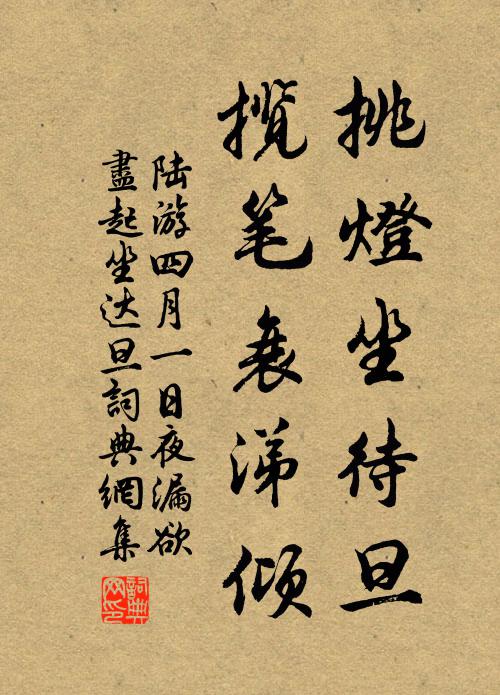 挑燈坐待旦
揽笔衰涕倾
陆游四月一日夜漏欲
盡起坐达旦詞典網集